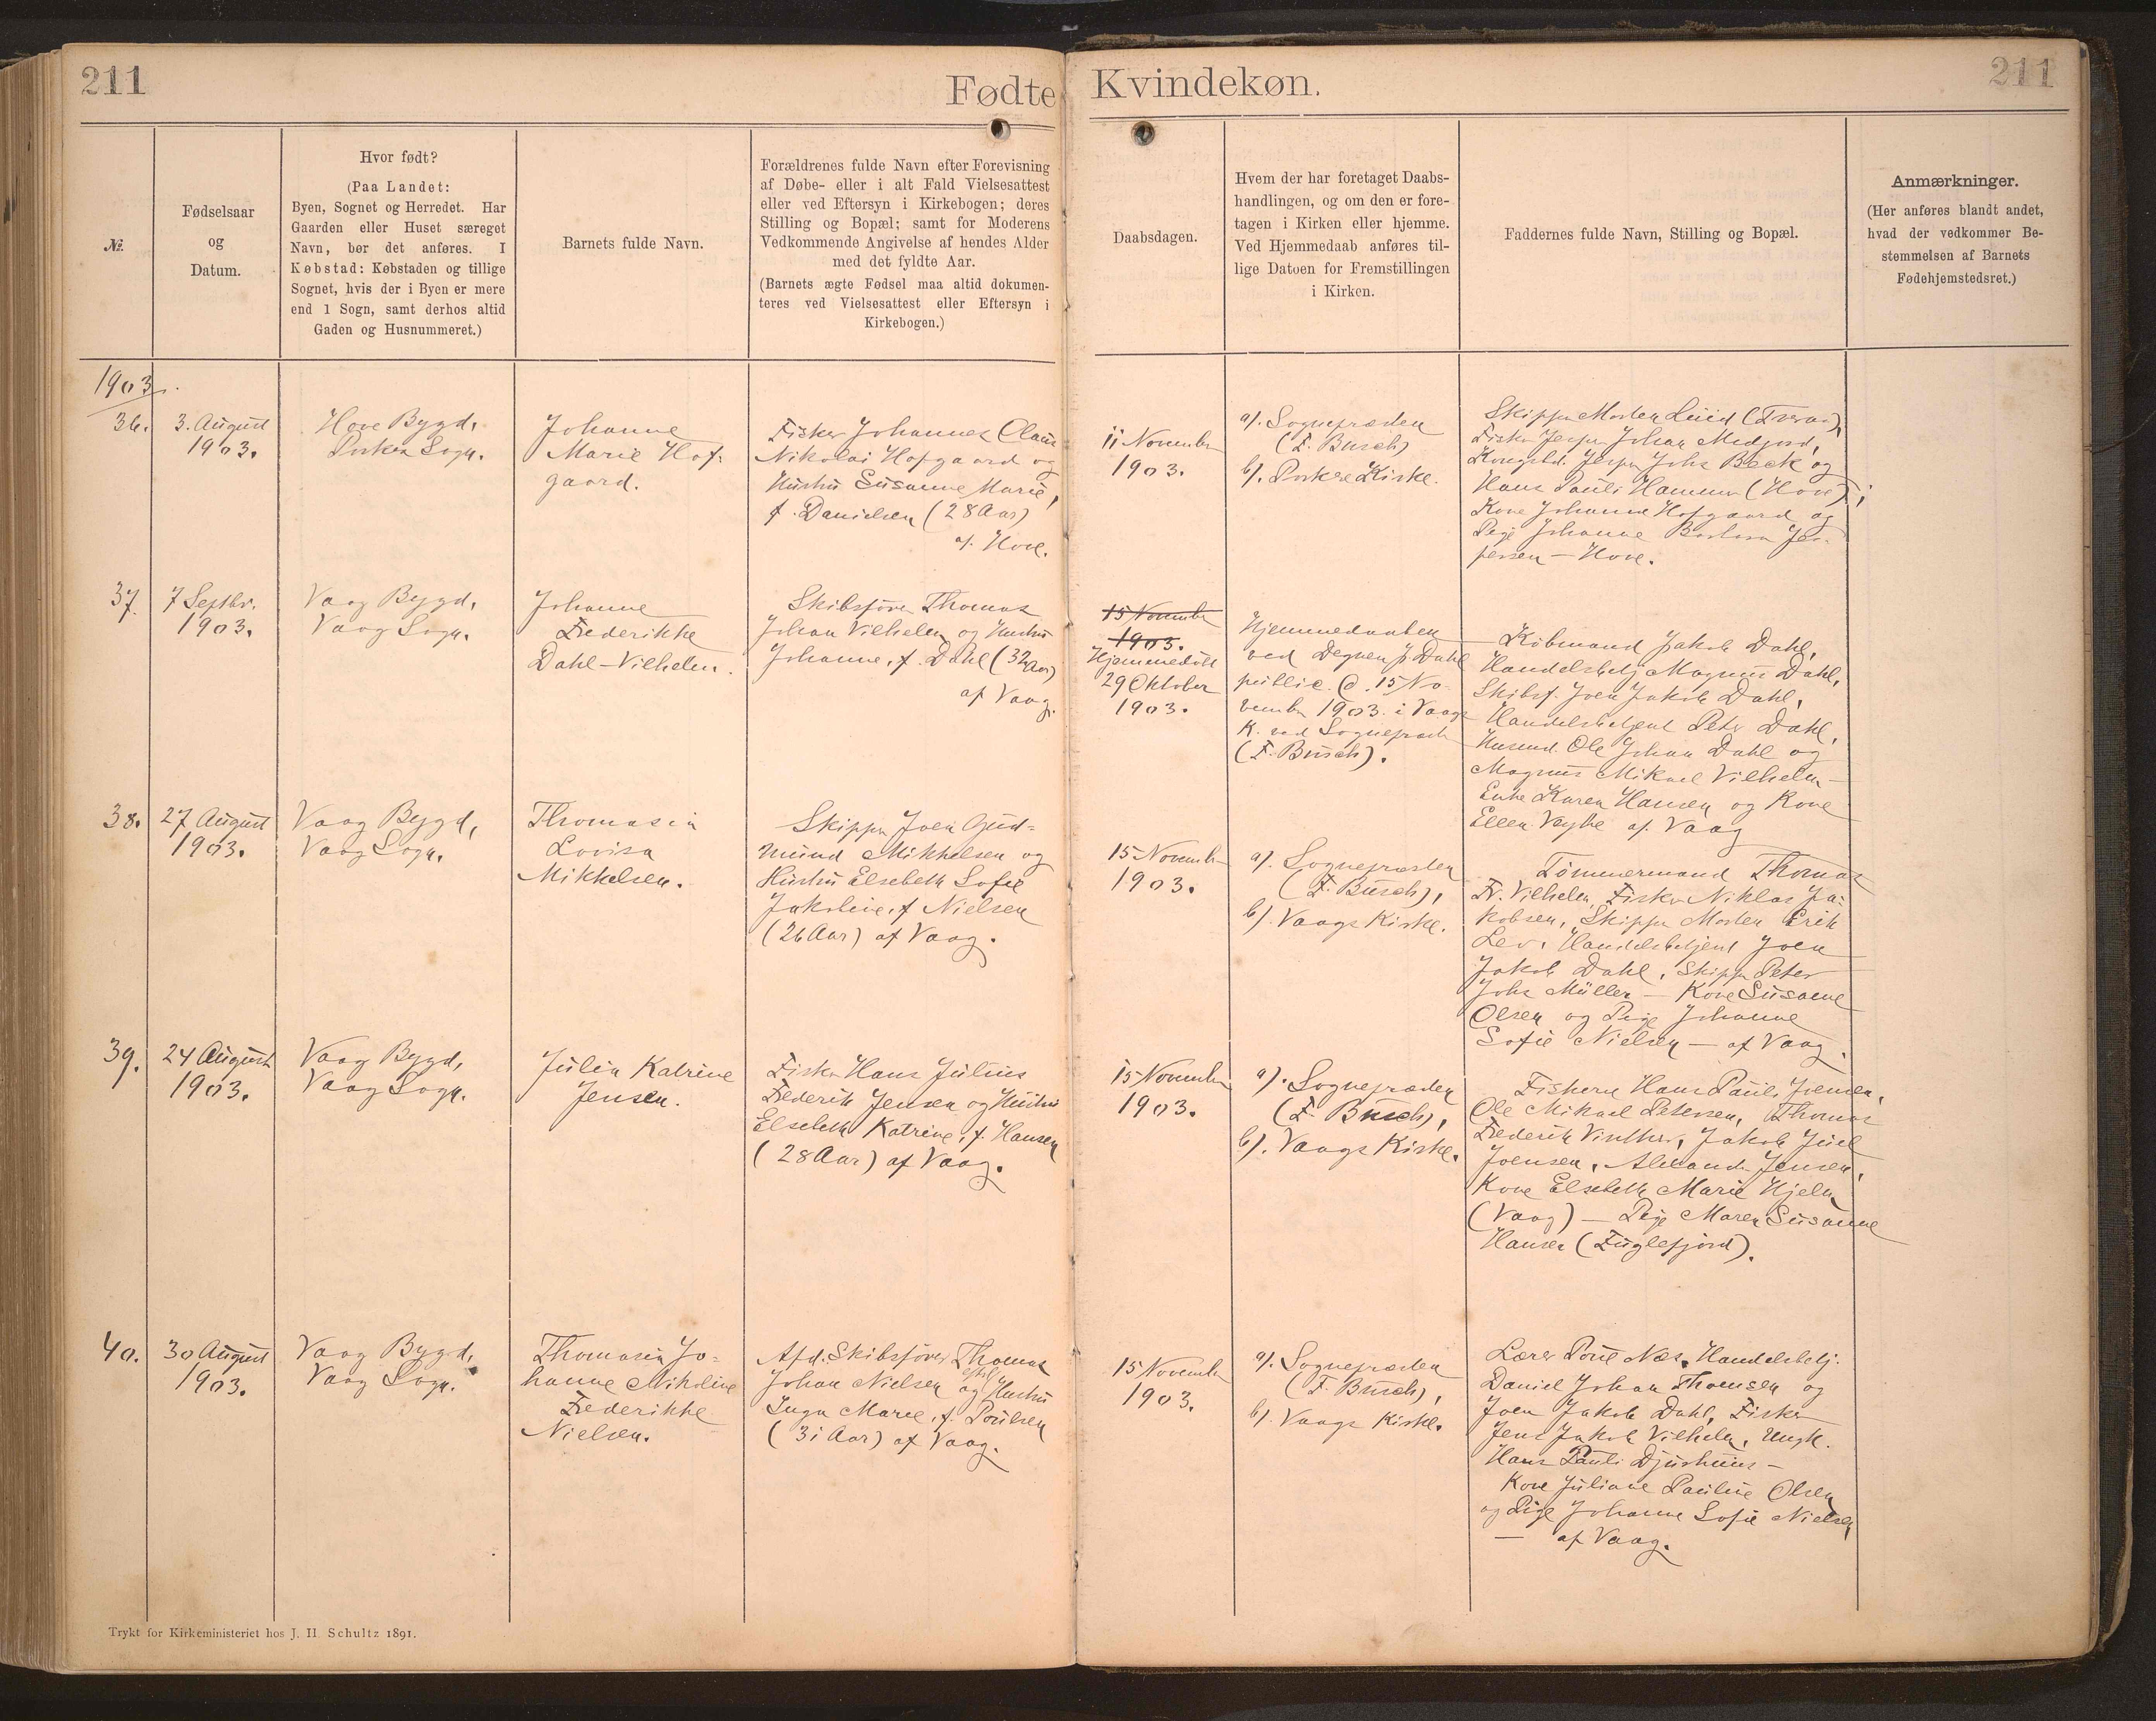 211
Fødte
Kvindekøn.
211
№.
Fødselsaar
og
Datum.
Hvor født?
(Paa Landet:
Byen, Sognet og Herredet. Har
Gaarden eller Huset særeget
Navn, bør det anføres. I
Købstad: Købstaden og tillige
Sognet, hvis der i Byen er mere
end 1 Sogn, samt derhos altid
Gaden og Husnummeret.)
Barnets fulde Navn.
Forældrenes fulde Navn efter Forevisning
af Døbe- eller i alt Fald Vielsesattest
eller ved Eftersyn i Kirkebogen; deres
Stilling og Bopæl; samt for Moderens
Vedkommende Angivelse af hendes Alder
med det fyldte Aar.
(Barnets ægte Fødsel maa altid dokumen-
teres ved Vielsesattest eller Eftersyn i
Kirkebogen.)
Daabsdagen.
Hvem der har foretaget Daabs-
handlingen, og om den er fore-
tagen i Kirken eller hjemme.
Ved Hjemmedaab anføres til-
lige Datoen for Fremstillingen
i Kirken.
Faddernes fulde Navn, Stilling og Bopæl.
Anmærkninger.
(Her anføres blandt andet,
hvad der vedkommer Be-
stemmelsen af Barnets
Fødehjemstedsret.)
1903.
36.
3. August
1903.
Hove Bygd,
Porkere Sogn.
Johanne
Marie Hof-
gaard.
Fisker Johannes Claus
Nikolai Hofgaard og
Hustru Susanne Marie,
f. Danielsen (28 Aar)
af Hove.
11 November
1903.
a). Sognepræsten
(F. Busch)
b). Porkere Kirke.
Skipper Morten Luid (Tveraa),
Fisker Jesper Johan Midjord,
Kongsbd. Jesper Johs Beck og
Hans Pauli Hammer (Hove);
Kone Johanne Hofgaard og
Pige Johanne Barbara Jes-
persen — Hove.
37.
7 Septbr.
1903.
Vaag Bygd,
Vaag Sogn.
Johanne
Frederikke
Dahl-Vilhelm.
Skibsfører Thomas
Johan Vilhelm og Hustru
Johanne, f. Dahl (32 Aar)
af Vaag.
15 November
1903.
Hjemmedøbt
29 Oktober
1903.
Hjemmedaaben
ved Degnen J. Dahl
public. d. 15 No-
vember 1903 i Vaags
K. ved Sognepræsten
(F. Busch).
Købmand Jakob Dahl,
Handelsbetj Magnus Dahl,
Skibsf. Joen Jakob Dahl,
Handelsbetjent Peter Dahl,
Husmd. Ole Johan Dahl og
Magnus Mikael Vilhelm —
Enke Karen Hansen og Kone
Ellen Vejhe af Vaag
38.
27 August
1903.
Vaag Bygd,
Vaag Sogn.
Thomasia
Lovisa
Mikkelsen.
Skipper Joen Gud-
mund Mikkelsen og
Hustru Elsebeth Sofie
Jakobine, f Nielsen
(26 Aar) af Vaag.
15 November
1903.
a). Sognepræsten
(F. Busch),
b). Vaags Kirke.
Tømmermand Thomas
Fr. Vilhelm, Fisker Niklas Ja-
kobsen, Skipper Morten Erik
Lev, Handelsbetjent Joen
Jakob Dahl, Skipper Peter
Johs Müller — Kone Susanne
Olsen og Pige Johanne
Sofie Nielsen — af Vaag.
39.
24 August
1903.
Vaag Bygd,
Vaag Sogn.
Julia Katrine
Jensen.
Fisker Hans Julius
Frederik Jensen og Hustru
Elsebeth Katrine, f. Hansen
(28 Aar) af Vaag.
15 November
1903.
a). Sognepræsten
(F. Busch),
b). Vaags Kirke.
Fiskerne Hans Pauli Joensen,
Ole Mikael Petersen, Thomas
Frederik Vinther, Jakob Juel
Joensen, Alexander Jensen,
Kone Elsebeth Marie Hjelm
(Vaag) — Pige Maren Susanne
Hansen (Fuglefjord).
40.
30 August
1903.
Vaag Bygd,
Vaag Sogn.
Thomasia Jo-
hanne Nikoline
Frederikke
Nielsen.
Afd. Skibsfører Thomas
Johan Nielsen og Hustru
Inga Marie, f. Poulsen
(31 Aar) af Vaag.
15 November
1903.
a). Sognepræsten
(F. Busch),
b). Vaags Kirke.
Lærer Poul Næs, Handelsbetj.
Daniel Johan Thomsen og
Joen Jakob Dahl, Fisker
Jens Jakob Vilhelm, Ungk.
Hans Pauli Djurhuus —
Kone Juliane Pauline Olsen
og Pige Johanne Sofie Nielsen
— af Vaag.
Trykt for Kirkeministeriet hos J. H. Schultz 1891.